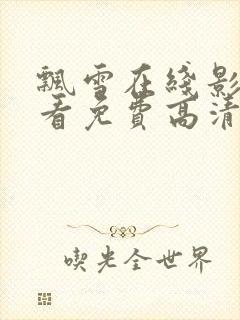 飘雪在綫影
看免费高清
喫光全世界